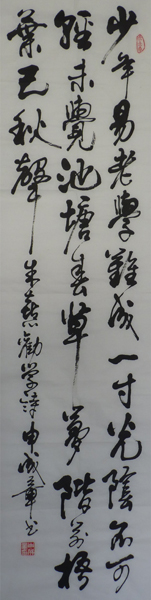 少年易老學難成一寸光陰不可
輕未覺池塘春草夢階前梧
葉已秋聲 朱熹勸学詩 申成章书